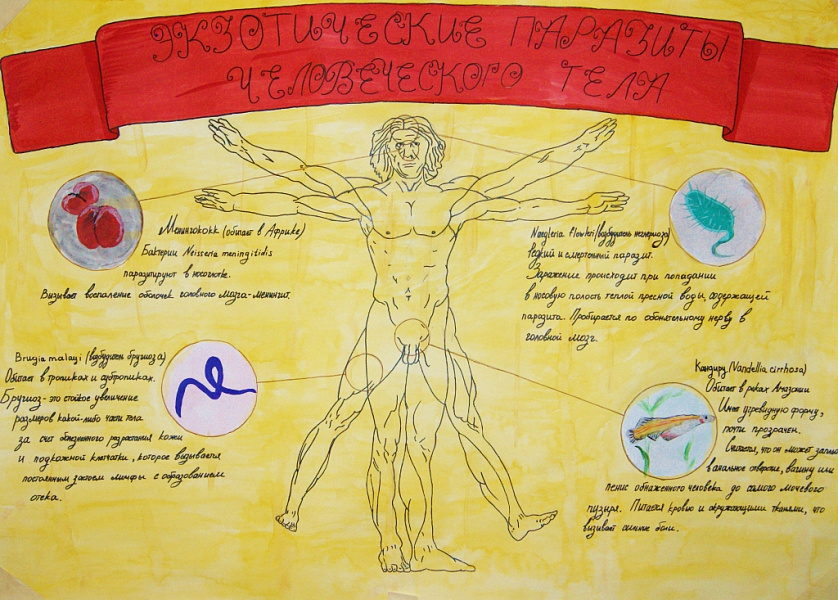 ЭКЗОТИЧЕСКИЕ ПАРАЗИТЫ
ЧЕЛОВЕЧЕСКОГО ТЕЛА
Менингококк (обитает в Африке)
Бактерии Neisseria meningitidis
паразитируют в носоглотке.
Вызывает воспаление оболочек головного мозга-менингит.
Naegleria flowleri (возбудитель неглериоза)
Редкий и смертельный паразит.
Заражение происходит при попадании
в носовую полость теплой пресной воды, содержащей
паразита. Пробирается по обонятельному нерву в
головной мозг.
Brugia malayi (возбудитель бругиоза)
Обитает в тропиках и субтропиках.
Бругиоз - это стойкое увеличение
размеров какой-либо части тела
за счет болезненного разрастания кожи
и подкожной клетчатки, которое вызывается
постоянным застоем лимфы с образованием
отека.
Кандиру (Vandellia cirrhosa)
Обитает в реках Амазонии
Имеет угревидную форму,
почти прозрачен.
Считается, что он может заплы
в анальное отверстие, вагину или
пенис обнаженного человека до самого мочевого
пузыря. Питается кровью и окружающими тканями, что
вызывает сильные боли.